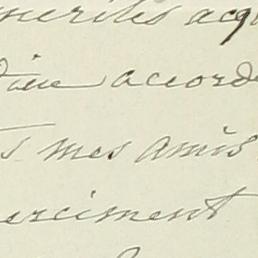 mérites acqu
accord
s mes amis
erciment